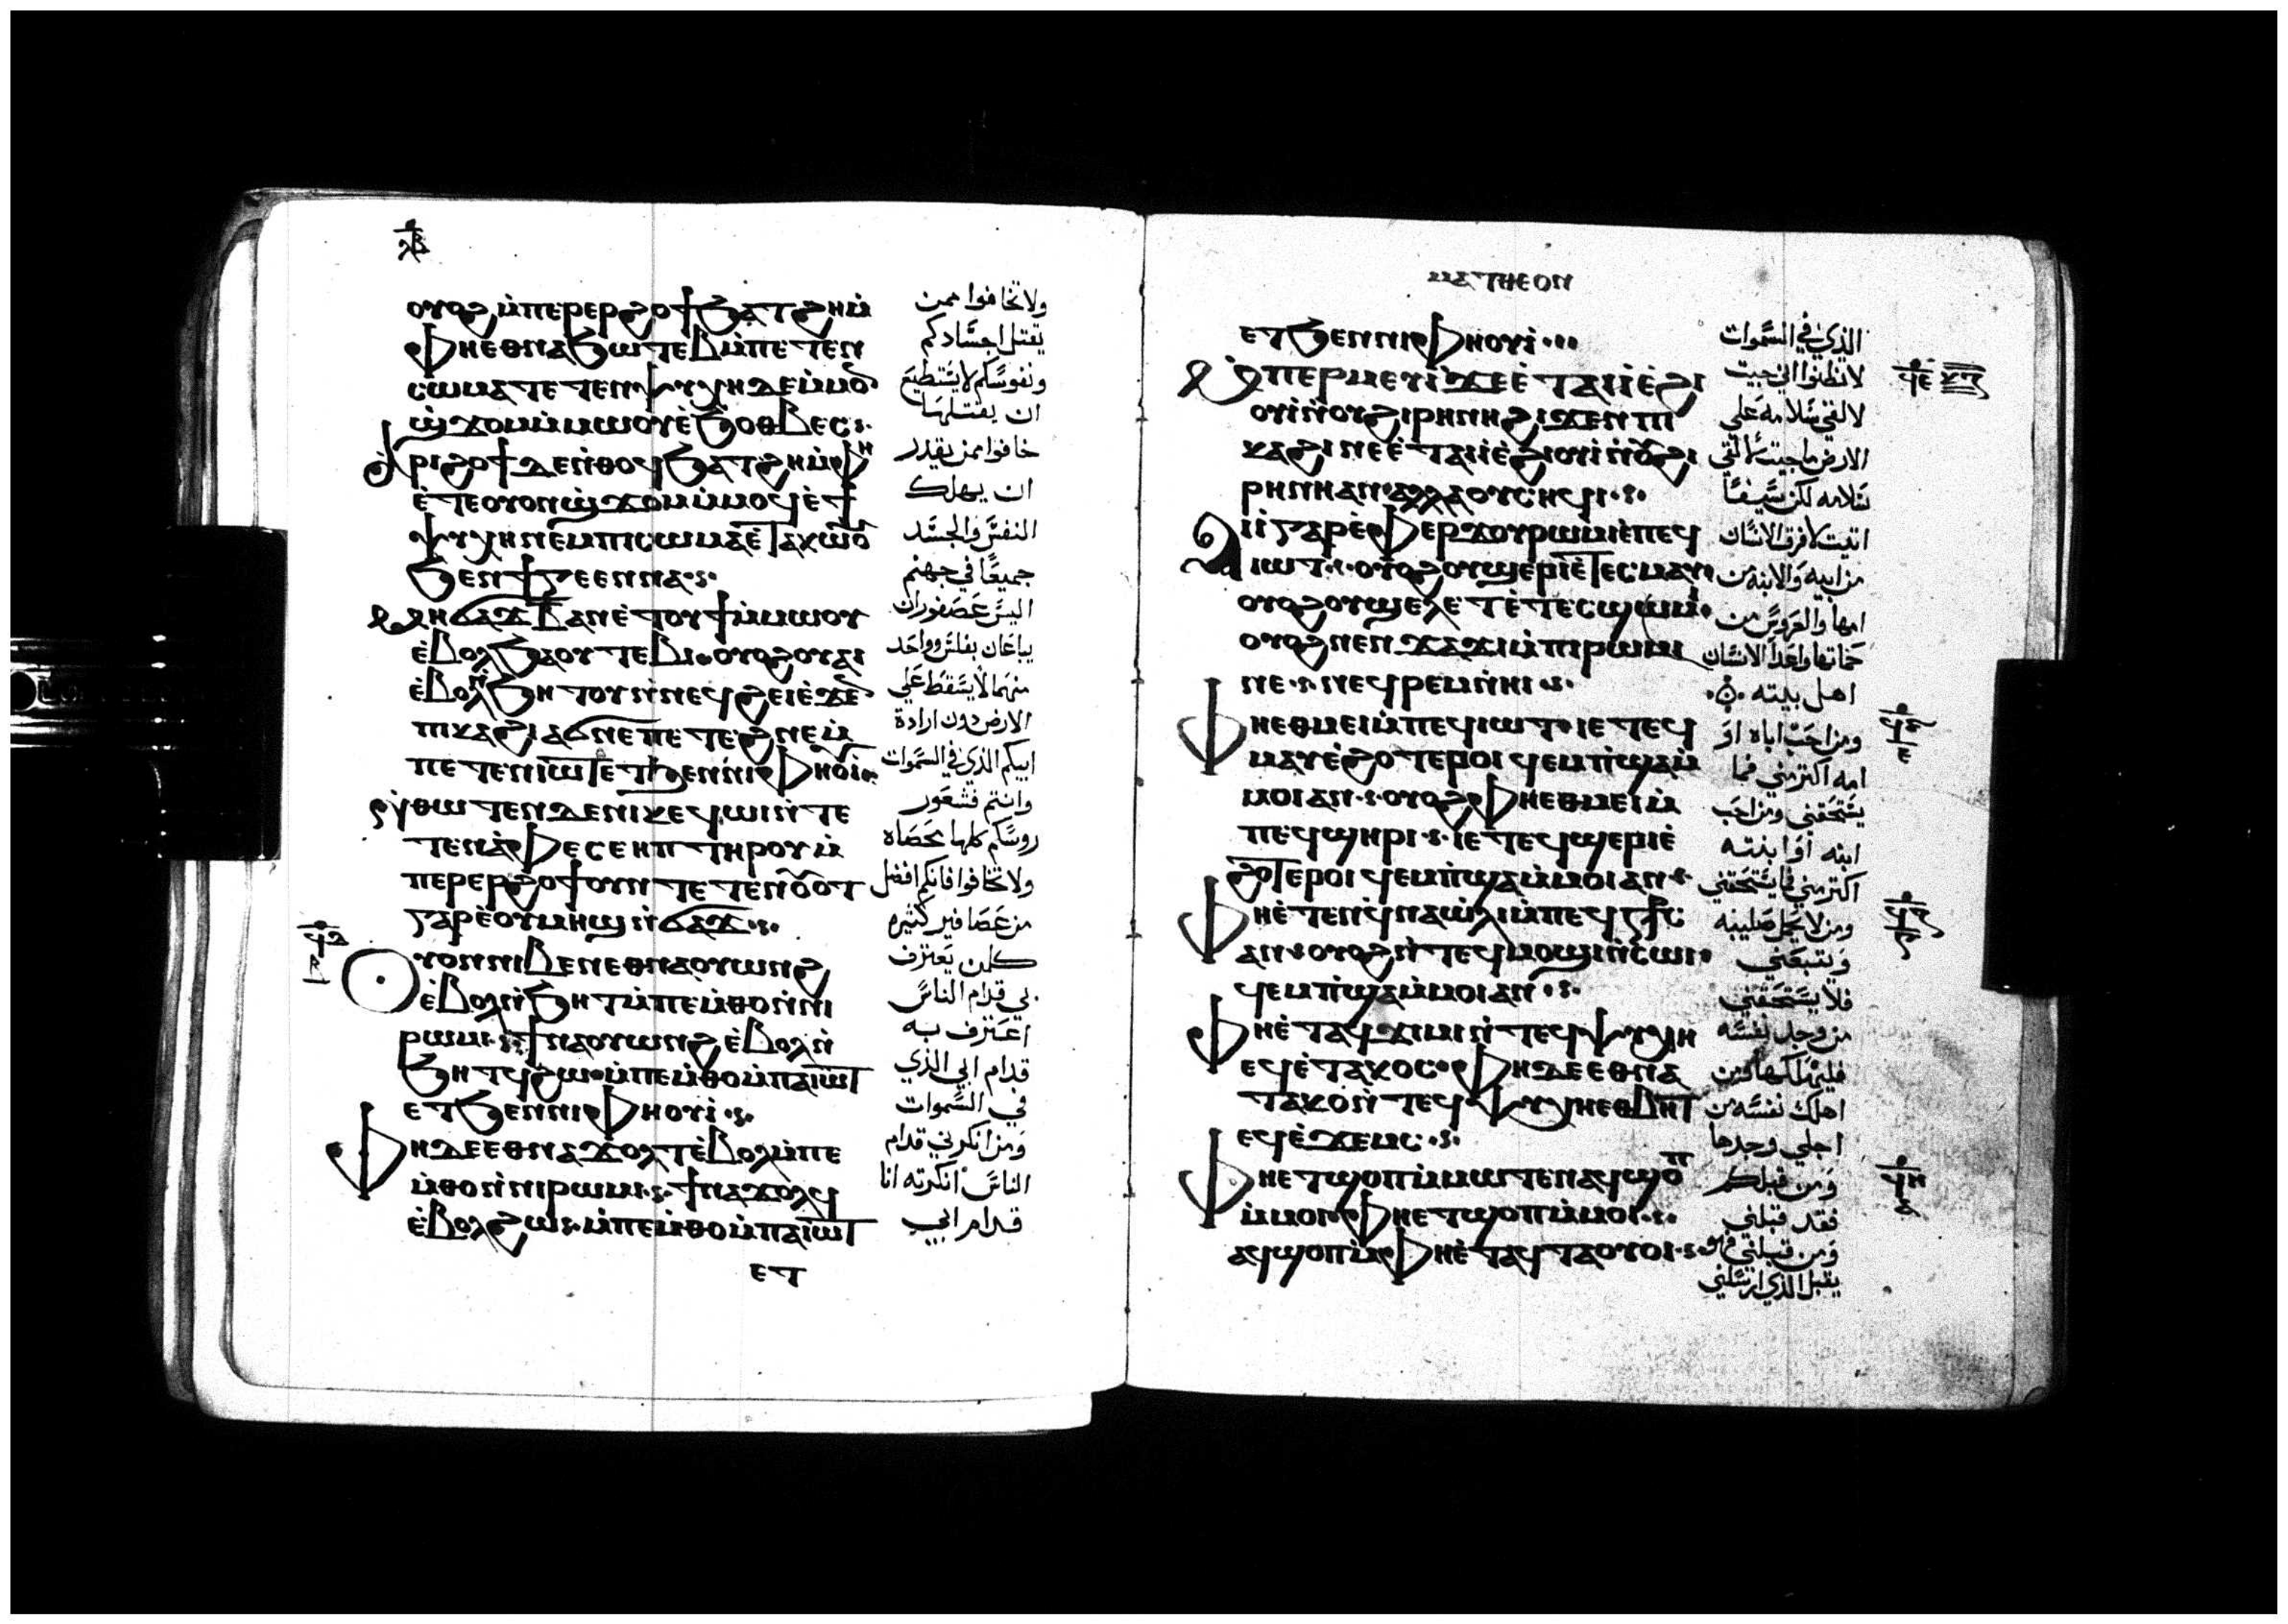 ⲗⲃ
ⲟⲩⲟϩ ⲙ̀ⲡⲉⲣⲉⲣϩⲟϯ ϧⲁⲧϩⲏ ⲙ̀
ⲫⲏⲉⲑⲛⲁϧⲱⲧⲉⲃ ⲙ̀ⲡⲉⲧⲉⲛ
ⲥⲱⲙⲁ ⲧⲉⲧⲉⲛⲯⲩⲭⲏ ⲇⲉ ⲙ̀ⲙⲟ̄
ϣ̀ϫⲟⲙ ⲙ̀ⲙⲱⲟⲩ ⲉ̀ϧⲟⲑⲃⲉⲥ
ⲁ̀ⲣⲓϩⲟϯ ⲇⲉ ⲛ̀ⲑⲟϥ ϧⲁⲧϩⲏ ⲙ̀ⲫⲏ
ⲉ̀ⲧⲉ ⲟⲩⲟⲛ ϣ̀ϫⲟⲙ ⲙ̀ⲙⲟϥ ⲉ̀ϯ
ⲯⲩⲭⲏ ⲛⲉⲙ ⲡⲓⲥⲱⲙⲁ ⲉ̀ⲧⲁⲕⲱⲟⲩ
ϧⲉⲛ ϯⲅⲉⲉⲛⲛⲁ
ⲙⲏ ϭⲁϫ ⲃ̄ ⲁⲛ ⲉ̀ⲧⲟⲩϯ ⲙ̀ⲙⲱⲟⲩ
ⲉ̀ⲃⲟⲗ ϧⲁ ⲟⲩⲧⲉⲃⲓ ⲟⲩⲟϩ ⲟⲩⲁⲓ
ⲉ̀ⲃⲟⲗ ⲛ̀ϧⲏⲧⲟⲩ ⲛ̀ⲛⲉϥϩⲉⲓ ⲉ̀ϫⲉⲛ
ⲡⲓⲕⲁϩⲓ ⲁϭⲛⲉ ⲡⲉⲧⲉϩⲛⲉ ⲙ̀
ⲡⲉⲧⲉⲛⲓⲱⲧ ⲉⲧϧⲉⲛ ⲛⲓⲫⲏⲟⲩⲓ̀
ⲛ̀ⲑⲱⲧⲉⲛ ⲇⲉ ⲛⲓⲕⲉϥⲱⲓ ⲛ̀ⲧⲉ
ⲧⲉⲛⲁ̀ⲫⲉ ⲥⲉⲏⲡ ⲧⲏⲣⲟⲩ ⲙ̀
ⲡⲉⲣⲉⲣϩⲟϯ ⲟⲩⲛ ⲧⲉⲧⲉⲛⲟⲩⲟⲧ
ⲅⲁⲣ ⲉ̀ⲟⲩⲙⲏϣ ⲛ̀ϭⲁϫ
ⲟⲩⲟⲛ ⲛⲓⲃⲉⲛ ⲉⲑⲛⲁⲟⲩⲱⲛϩ
ⲉ̀ⲃⲟⲗ ⲛ̀ϧⲏⲧ ⲙ̀ⲡⲉⲙ̀ⲑⲟ ⲛ̀ⲛⲓ
ⲣⲱⲙⲓ ϯⲛⲁⲟⲩⲱⲛϩ ⲉ̀ⲃⲟⲗ ⲛ̀
ϧⲏⲧϥ ϩⲱ ⲙ̀ⲡⲉⲙ̀ⲑⲟ ⲙ̀ⲡⲁⲓⲱⲧ
ⲉⲧϧⲉⲛ ⲛⲓⲫⲏⲟⲩⲓ̀
ⲫⲏ ⲇⲉ ⲉⲑⲛⲁϫⲟⲗⲧ ⲉ̀ⲃⲟⲗ ⲙ̀ⲡⲉ
ⲙ̀ⲑⲟ ⲛ̀ⲛⲓⲣⲱⲙⲓ ϯⲛⲁϫⲟⲗϥ
ⲉ̀ⲃⲟⲗ ϩⲱ ⲙ̀ⲡⲉⲙ̀ⲑⲟ ⲙ̀ⲡⲁⲓⲱⲧ
ⲉⲧ
ولا تخافوا ممن
يقتل اجسادكم
ونفوسكم لا يستطيع
ان يقتلها
خافوا ممن يقدر
ان يهلك
النفس والجسد
جميعًا في جهنم
اليس عصفوران
يباعان بفلس وواحد
منهما لا يسقط على
الارض دون ارادة
ابيكم الذي في السموات
وانتم فشعور
روسكم كلها محصاه
ولا تخافوا فانكم افضل
من عصافير كثيره
كلمن يعترف
بي قدام الناس
اعترف به
قدام ابي الذي
في السموات
ومن انكرني قدام
الناس انكرته انا
قدام ابي
ⲙⲁⲧⲑⲉⲟⲛ
ⲉⲧϧⲉⲛ ⲛⲓⲫⲏⲟⲩⲓ̀
ⲙ̀ⲡⲉⲣⲙⲉⲩⲓ̀ ϫⲉ ⲉ̀ⲧⲁⲓⲓ̀ ⲉ̀ϩⲓ
ⲟⲩⲓ̀ ⲛ̀ⲟⲩϩⲓⲣⲏⲛⲏ ϩⲓϫⲉⲛ ⲡⲓ
ⲕⲁϩⲓ ⲛⲉ ⲉ̀ⲧⲁⲓⲓ̀ ⲉ̀ϩⲓⲟⲩⲓ̀ ⲛ̀ⲟⲩϩⲓ
ⲣⲏⲛⲏ ⲁⲛ ⲁⲗⲗⲁ ⲟⲩⲥⲏϥⲓ
ⲁⲓⲓ̀ ⲅⲁⲣ ⲉ̀ⲫⲉⲣϫ ⲟⲩⲣⲱⲙⲓ ⲉ̀ⲡⲉϥ
ⲓⲱⲧ ⲟⲩⲟϩ ⲟⲩϣⲉⲣⲓ ⲉ̀ⲧⲉⲥⲙⲁⲩ
ⲟⲩⲟϩ ⲟⲩϣⲉⲗⲉⲧ ⲉ̀ⲧⲉⲥϣⲱⲙⲓ
ⲟⲩⲟϩ ⲛⲉⲛϫⲁϫⲓ ⲙ̀ⲡⲓⲣⲱⲙⲓ
ⲛⲉ ⲛⲉϥⲣⲉⲙⲛ̀ⲏⲓ
ⲫⲏⲉⲑⲙⲉⲓ ⲙ̀ⲡⲉϥⲓⲱⲧ ⲓⲉ ⲧⲉϥ
ⲙⲁⲩ ⲉ̀ϩⲟⲧⲉⲣⲟⲓ ϥⲉⲙⲡ̀ϣⲁ ⲙ̀
ⲙⲟⲓ ⲁⲛ ⲟⲩⲟϩ ⲫⲏⲉⲑⲙⲉⲓ ⲙ̀
ⲡⲉϥϣⲏⲣⲓ ⲓⲉ ⲧⲉϥϣⲉⲣⲓ ⲉ̀
ϩⲟⲧⲉⲣⲟⲓ ϥⲉⲙⲡ̀ϣⲁ ⲙ̀ⲙⲟⲓ ⲁⲛ
ⲫⲏⲉ̀ⲧⲉⲛϥ̀ⲛⲁⲱ̀ⲗⲓ ⲙ̀ⲡⲉϥⲥ̄ⲧ̄ⲥ̄
ⲁⲛ ⲟⲩⲟϩ ⲛ̀ⲧⲉϥⲙⲟϣⲓ ⲛ̀ⲥⲱⲓ
ϥⲉⲙⲡ̀ϣⲁ ⲙ̀ⲙⲟⲓ ⲁⲛ
ⲫⲏⲉ̀ⲧⲁϥϫⲓⲙⲓ ⲛ̀ⲧⲉϥⲯⲩⲭⲏ
ⲉϥⲉ̀ⲧⲁⲕⲟⲥ ⲫⲏ ⲇⲉ ⲉⲑⲛⲁ
ⲧⲁⲕⲟ ⲛ̀ⲧⲉϥⲯⲩⲭⲏ ⲉⲑⲃⲏⲧ
ⲉϥⲉ̀ϫⲉⲙⲥ
ⲫⲏⲉⲧϣⲱⲡ ⲙ̀ⲙⲱⲧⲉⲛ ⲁϥϣⲱⲡ
ⲙ̀ⲙⲟⲓ ⲫⲏⲉⲧϣⲟⲡ ⲙ̀ⲙⲟⲓ
ⲁϥϣⲟⲡ ⲙ̀ⲫⲏⲉ̀ⲧⲁϥⲧⲁⲟⲩⲟⲓ
الذي في السموات
لا تظنوا اني جيت
لالقي سلامه على
الارض ما جيت لالقي
سلامه لكن سيفًا
اتيت لافرق الانسان
من ابيه والابنه من
امها والعروس من
حماتها واعدا الانسان
اهل بيته
ومن احب اباه او
امه اكثر مني فما
يستحقني ومن احب
ابنه او ابنته
اكثر مني فما يستحقني
ومن لا يحمل صليبه
ويتبعني
فلا يستحقني
من وجد نفسه
فليهلكها ومن
اهلك نفسه من
اجلي وجدها
ومن قبلكم
فقد قبلني
ومن قبلني فهو
يقبل الذي ارسلني